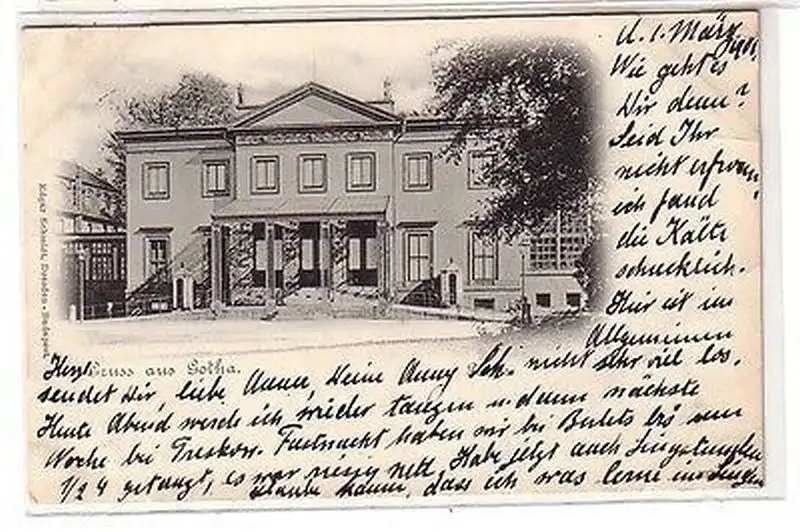 d. 1. März 1901.
Wie geht es
Dir denn?
Seid Ihr
nicht erfroren,
ich fand
die Kälte
schrecklich.
Hier ist im
Allgemeinen
nicht sehr viel los.
Edgar Schmidt, Dresden-Budapest.
Herzl. Gruss aus Gotha.
sendet Dir, liebe Anna, Deine Anny Sch.
Heute Abend werde ich wieder tanzen u. dann nächste
Woche bei Treskow. Fastnacht haben wir bei bis
1/2 4 getanzt, es war riesig nett. Habe jetzt auch Singstunden
glaube kaum, dass ich was lerne im Singen